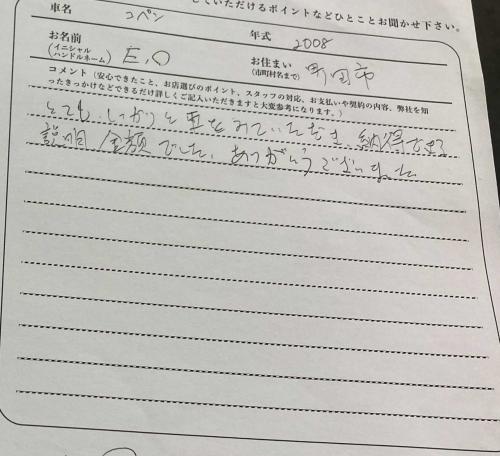 していただけるポイントなどひとことお聞かせ下さい。
車名 コペン 年式 2008
お名前 (イニシャル ハンドルネーム) E.O お住まい (市町村名まで) 町田市
コメント(安心できたこと、お店選びのポイント、スタッフの対応、お支払いや契約の内容、弊社を知
ったきっかけなどできるだけ詳しくご記入いただきますと大変参考になります。)
とても、しっかりと車をみていただき、納得できる
説明、金額でした。ありがとうございました